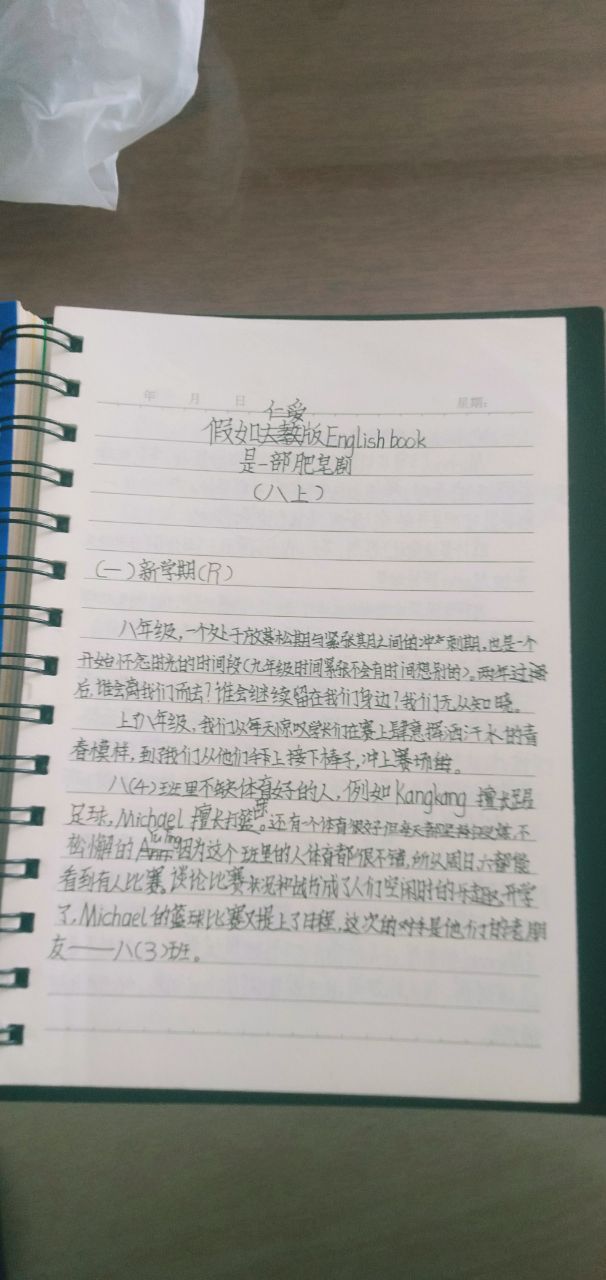 年 月 日 星期:
仁爱
假如大教版English book
是一部肥皂剧
(八上)
(一)新学期(R)
八年级,一个处于放松期与紧张期之间的冲刺期,也是一个
开始怀念时光的时间段(九年级时间紧张不会有时间想别的)。两年过
后,谁会离我们而去?谁会继续留在我们身边?我们无从知晓。
上了八年级,我们从每天惊叹学长们在赛上肆意挥洒汗水的青
春模样,到我们从他们手上接下棒子,冲上赛场
八(4)班里不缺体育好的人,例如Kangkang 擅长踢
足球,Michael 擅长打篮球。还有一个体育很好但每天都坚持
松懈的 因为这个班里的人体育都很不错,所以周日、六都能
看到有人比赛。谈论比赛状况和战成了人们空闲时的乐趣,开学
了,Michael的篮球比赛又提上了日程,这次的对手是他们的老朋
友——八(3)班。